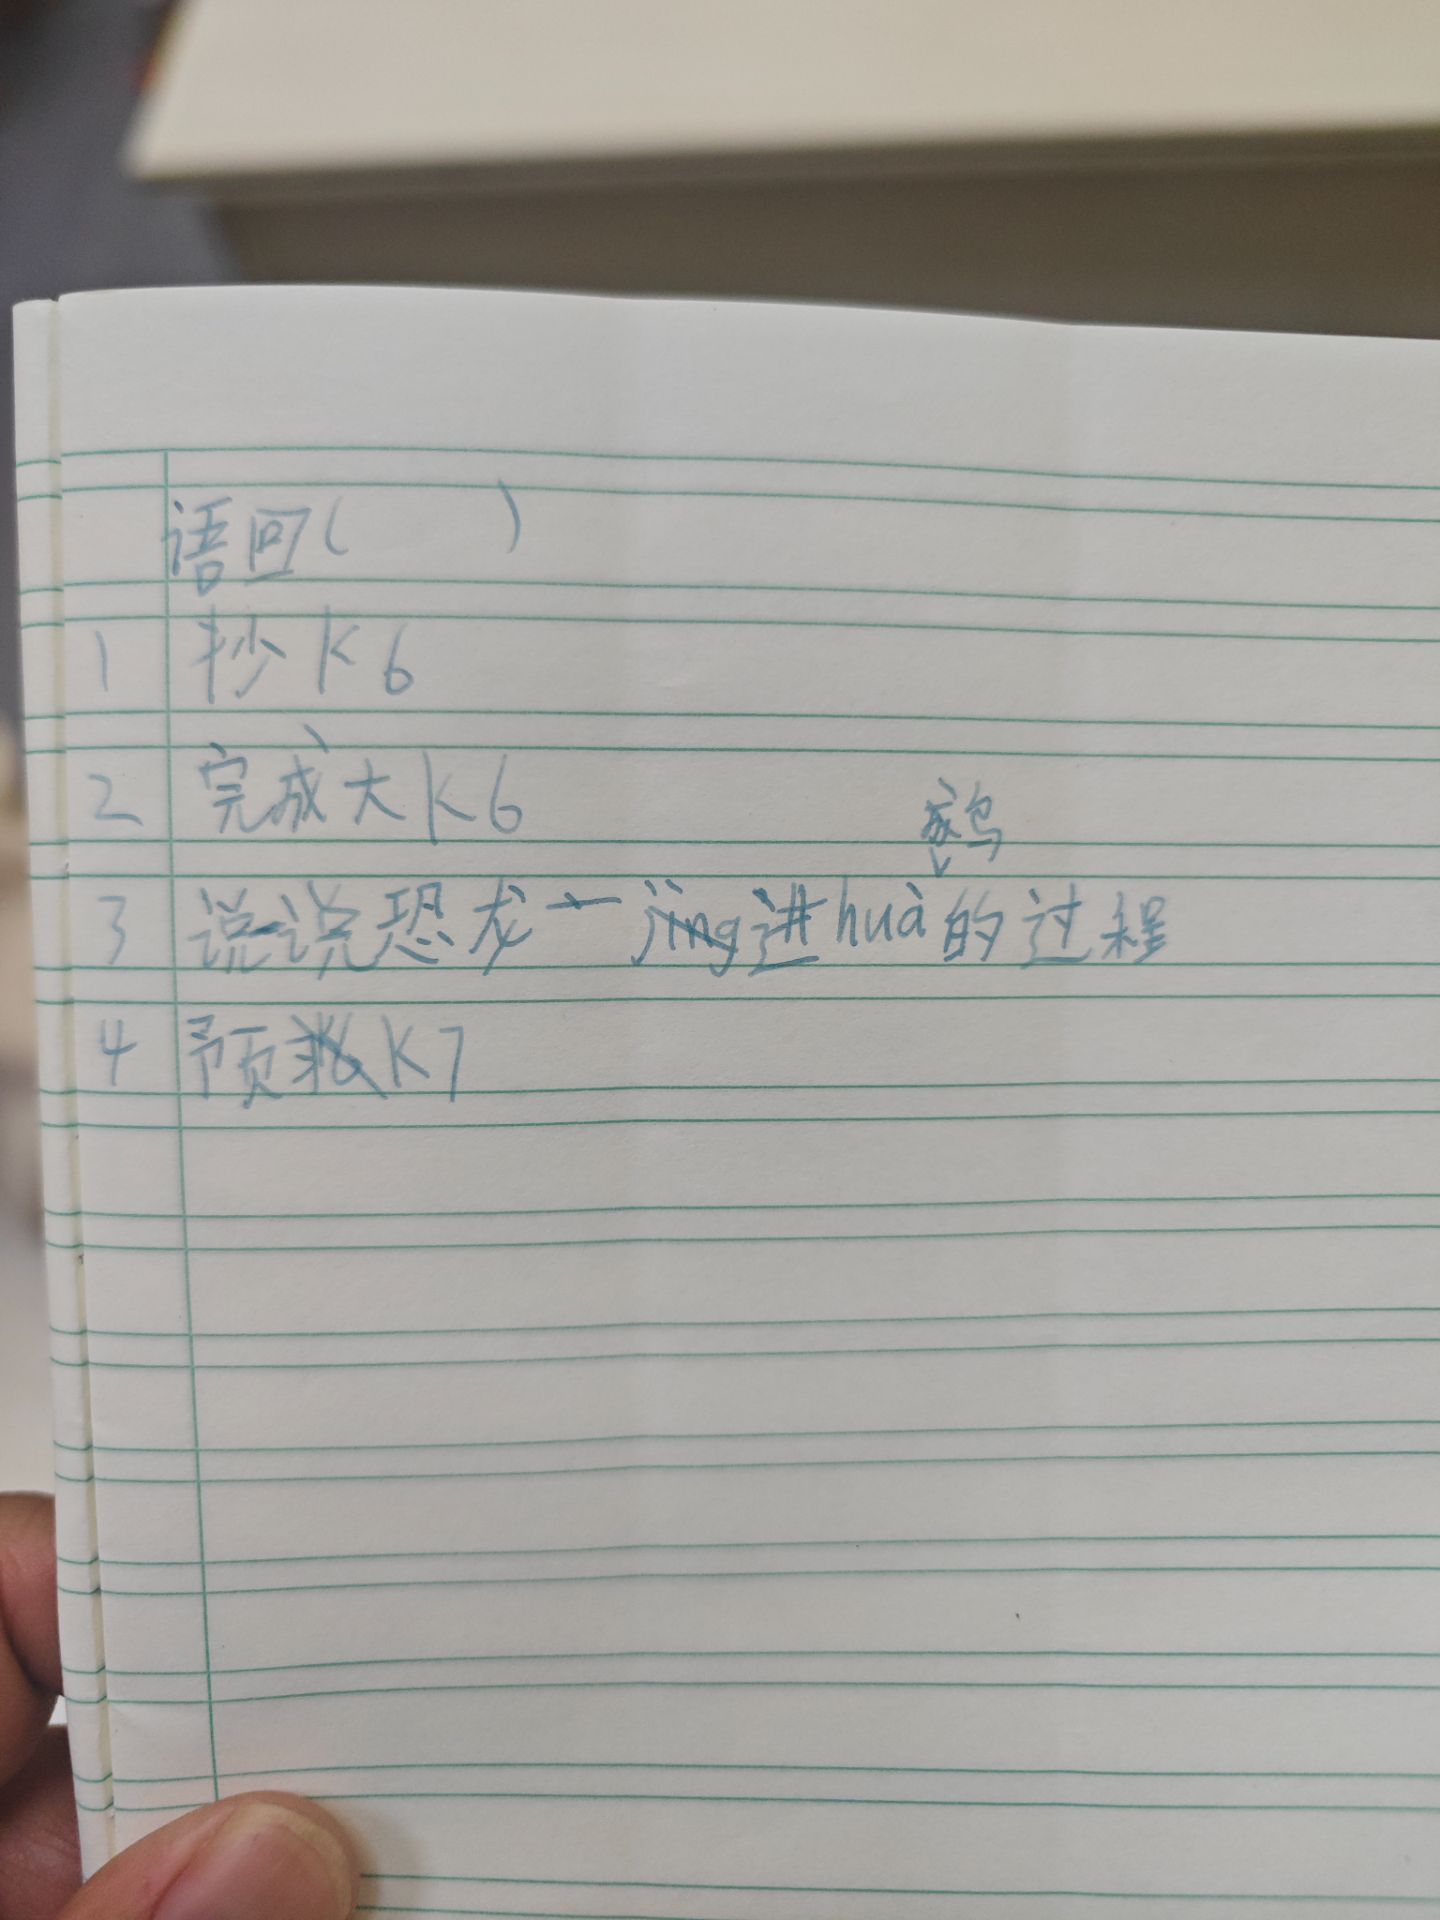 语回(    )
1 抄K6
2 完成大K6
3 说说恐龙一进huà成鸟的过程
4 预K7